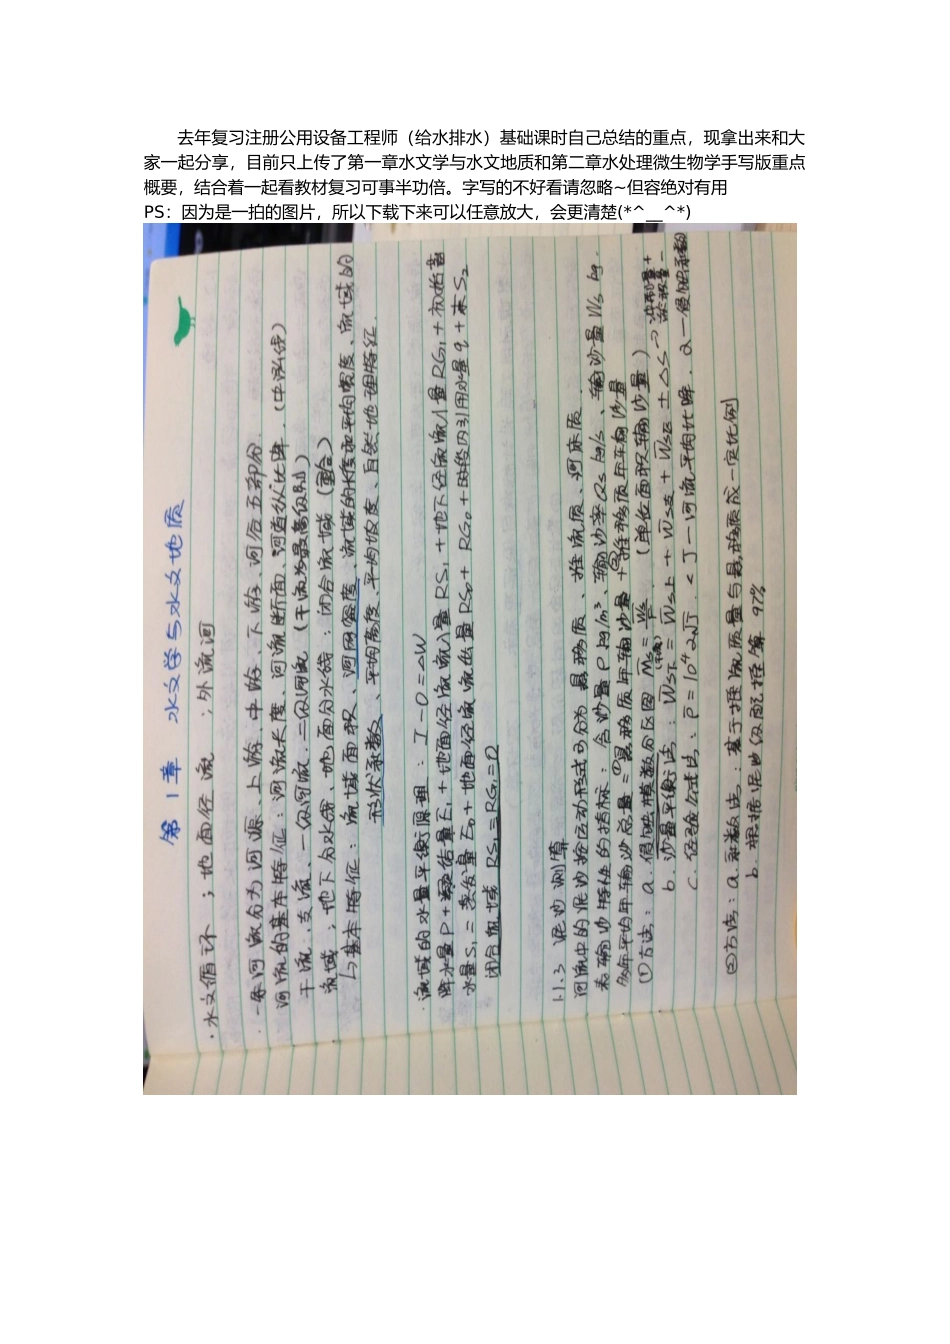 去年复习注册公用设备工程师（给水排水）基础课时自己总结的重点，现拿出来和大
家一起分享，目前只上传了第一章水文学与水文地质和第二章水处理微生物学手写版重点
概要，结合着一起看教材复习可事半功倍。字写的不好看请忽略~但容绝对有用
PS：因为是一拍的图片，所以下载下来可以任意放大，会更清楚(*^__^*)
第1章 水文学与水文地质
·水文循环；地面径流；外流河
·一条河流分为河源、上游、中游、下游、河口五部分.
河流的基本特征：河流长度、河流断面、河道纵比降.（中泓线）
干流、支流、一级河流.二级河流（干流为最高级别）
流域；地下分水线、地面分水线；闭合流域（重合）
↳基本特征：流域面积、河网密度、流域的长度和平均宽度、流域的
形状系数、平均高度、平均坡度、自然地理特征.
·流域的水量平衡原理：I-O=△W
降水量P+凝结量E₁+地面径流流入量RS₁+地下径流流入量RG₁+初始蓄
水量S₁=蒸发量E₀+地面径流流出量RS₀+RG₀+时段内引用水量q+末S₂
闭合流域 RS₁=RG₁=0
1.1.3 泥沙测算
河流中的泥沙按运动形式可分为悬移质、推流质、河床质.
表输沙特性的指标：含沙量ρ kg/m³、输沙率Qs kg/s、输沙量Ws kg.
多年平均年输沙总量=①悬移质年输沙量+②推移质年输沙量
①方法：a.侵蚀模数分区图 Ms=Ws/F（单位面积输沙量）
b.沙量平衡法：WS下=WS上+WS支+WS区±△S→冲刷量+ 淤积量-
c.经验公式法：ρ=10⁴α√J.<J—河流平均比降.α—侵蚀系数
②方法：a.系数法：基于推流质量与悬移质成一定比例
b.根据泥沙级配推算 97%